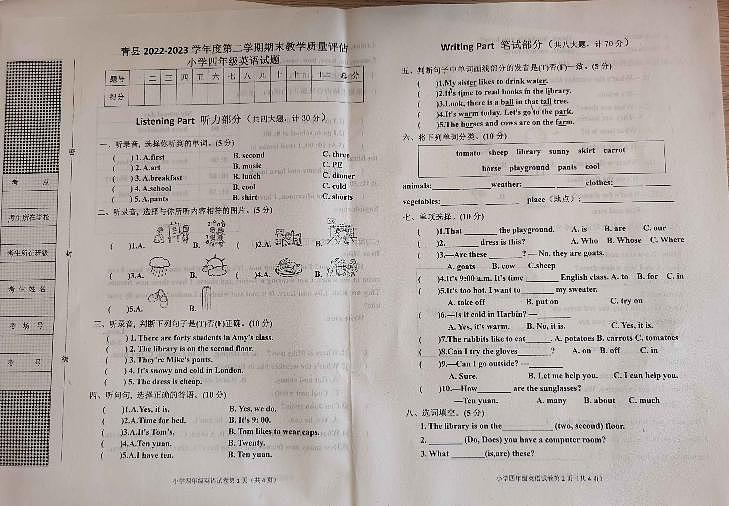 青县 2022-2023 学年度第二学期期末教学质量评估
小学四年级英语试题
题号 一 二 三 四 五 六 七 八 九 十 十一 十二 总分
得分
Listening Part 听力部分（共四大题，计 30 分）
一、听录音，选择你听到的单词。(5 分)
( ) 1. A.first B. second C. three
( ) 2. A.art B. music C. PE
( ) 3. A.breakfast B. lunch C. dinner
( ) 4. A.school B. cool C. cold
( ) 5. A.pants B. shirt C. shorts
二、听录音，选择与你所听内容相符的图片。(5 分)
( )1.A. B. ( )2.A. B.
( )3.A. B. ( )4.A. B.
( )5.A. B.
三、听录音, 判断下列句子是(T)否(F)正确。(10 分)
( ) 1. There are forty students in Amy's class.
( ) 2. The library is on the second floor.
( ) 3. They're Mike's pants.
( ) 4. It's snowy and cold in London.
( ) 5. The dress is cheap.
四、听问句, 选择正确的答语。(10 分)
( )1.A.Yes, it is. B. Yes, we do.
( )2.A.Time for bed. B. It's 9:00.
( )3.A.It's Tom's. B. Tom likes to wear caps.
( )4.A.Ten yuan. B. Twenty.
( )5.A.I have ten. B. Ten yuan.
小学四年级英语试卷第 1 页（共 4 页）
考 点
考生所在学校
考生所在班级
考 生 姓 名
考 场 号
考 号
密
封
线
Writing Part 笔试部分（共八大题，计 70 分）
五、判断句子中单词画线部分的发音是(T)否(F)一致。(5 分)
( )1.My sister likes to drink water.
( )2.It's time to read books in the library.
( )3.Look, there is a ball in that tall tree.
( )4.It's warm today. Let's go to the park.
( )5.The horses and cows are on the farm.
六、将下列单词分类。(10 分)
tomato sheep library sunny skirt carrot
horse playground pants cool
animals: weather: clothes:
vegetables: place（地点）:
七、单项选择。(10 分)
( )1.That ______ the playground. A. is B. are C. our
( )2. ______ dress is this? A. Who B. Whose C. Where
( )3.—Are these ______? — No, they are goats.
A. goats B. cow C.sheep
( )4.It's 9:00 a.m. It's time ______ English class. A. to B. for C. in
( )5.It's too hot. I want to ______ my sweater.
A. take off B. put on C. try on
( )6.—Is it cold in Harbin? — ______
A. Yes, it's warm. B. No, it is. C. Yes, it is.
( )7.The rabbits like to eat ______. A. potatoes B. carrots C. tomatoes
( )8.Can I try the gloves ______? A. on B. off C. in
( )9.—Can I go outside? — ______
A. Sure. B. Let me help you. C. I can help you.
( )10.—How ______ are the sunglasses?
—Ten yuan. A. many B. about C. much
八、选词填空。(5 分)
1. The library is on the ______ (two, second) floor.
2. ______ (Do, Does) you have a computer room?
3. What ______ (is,are) these?
小学四年级英语试卷第 2 页（共 4 页）